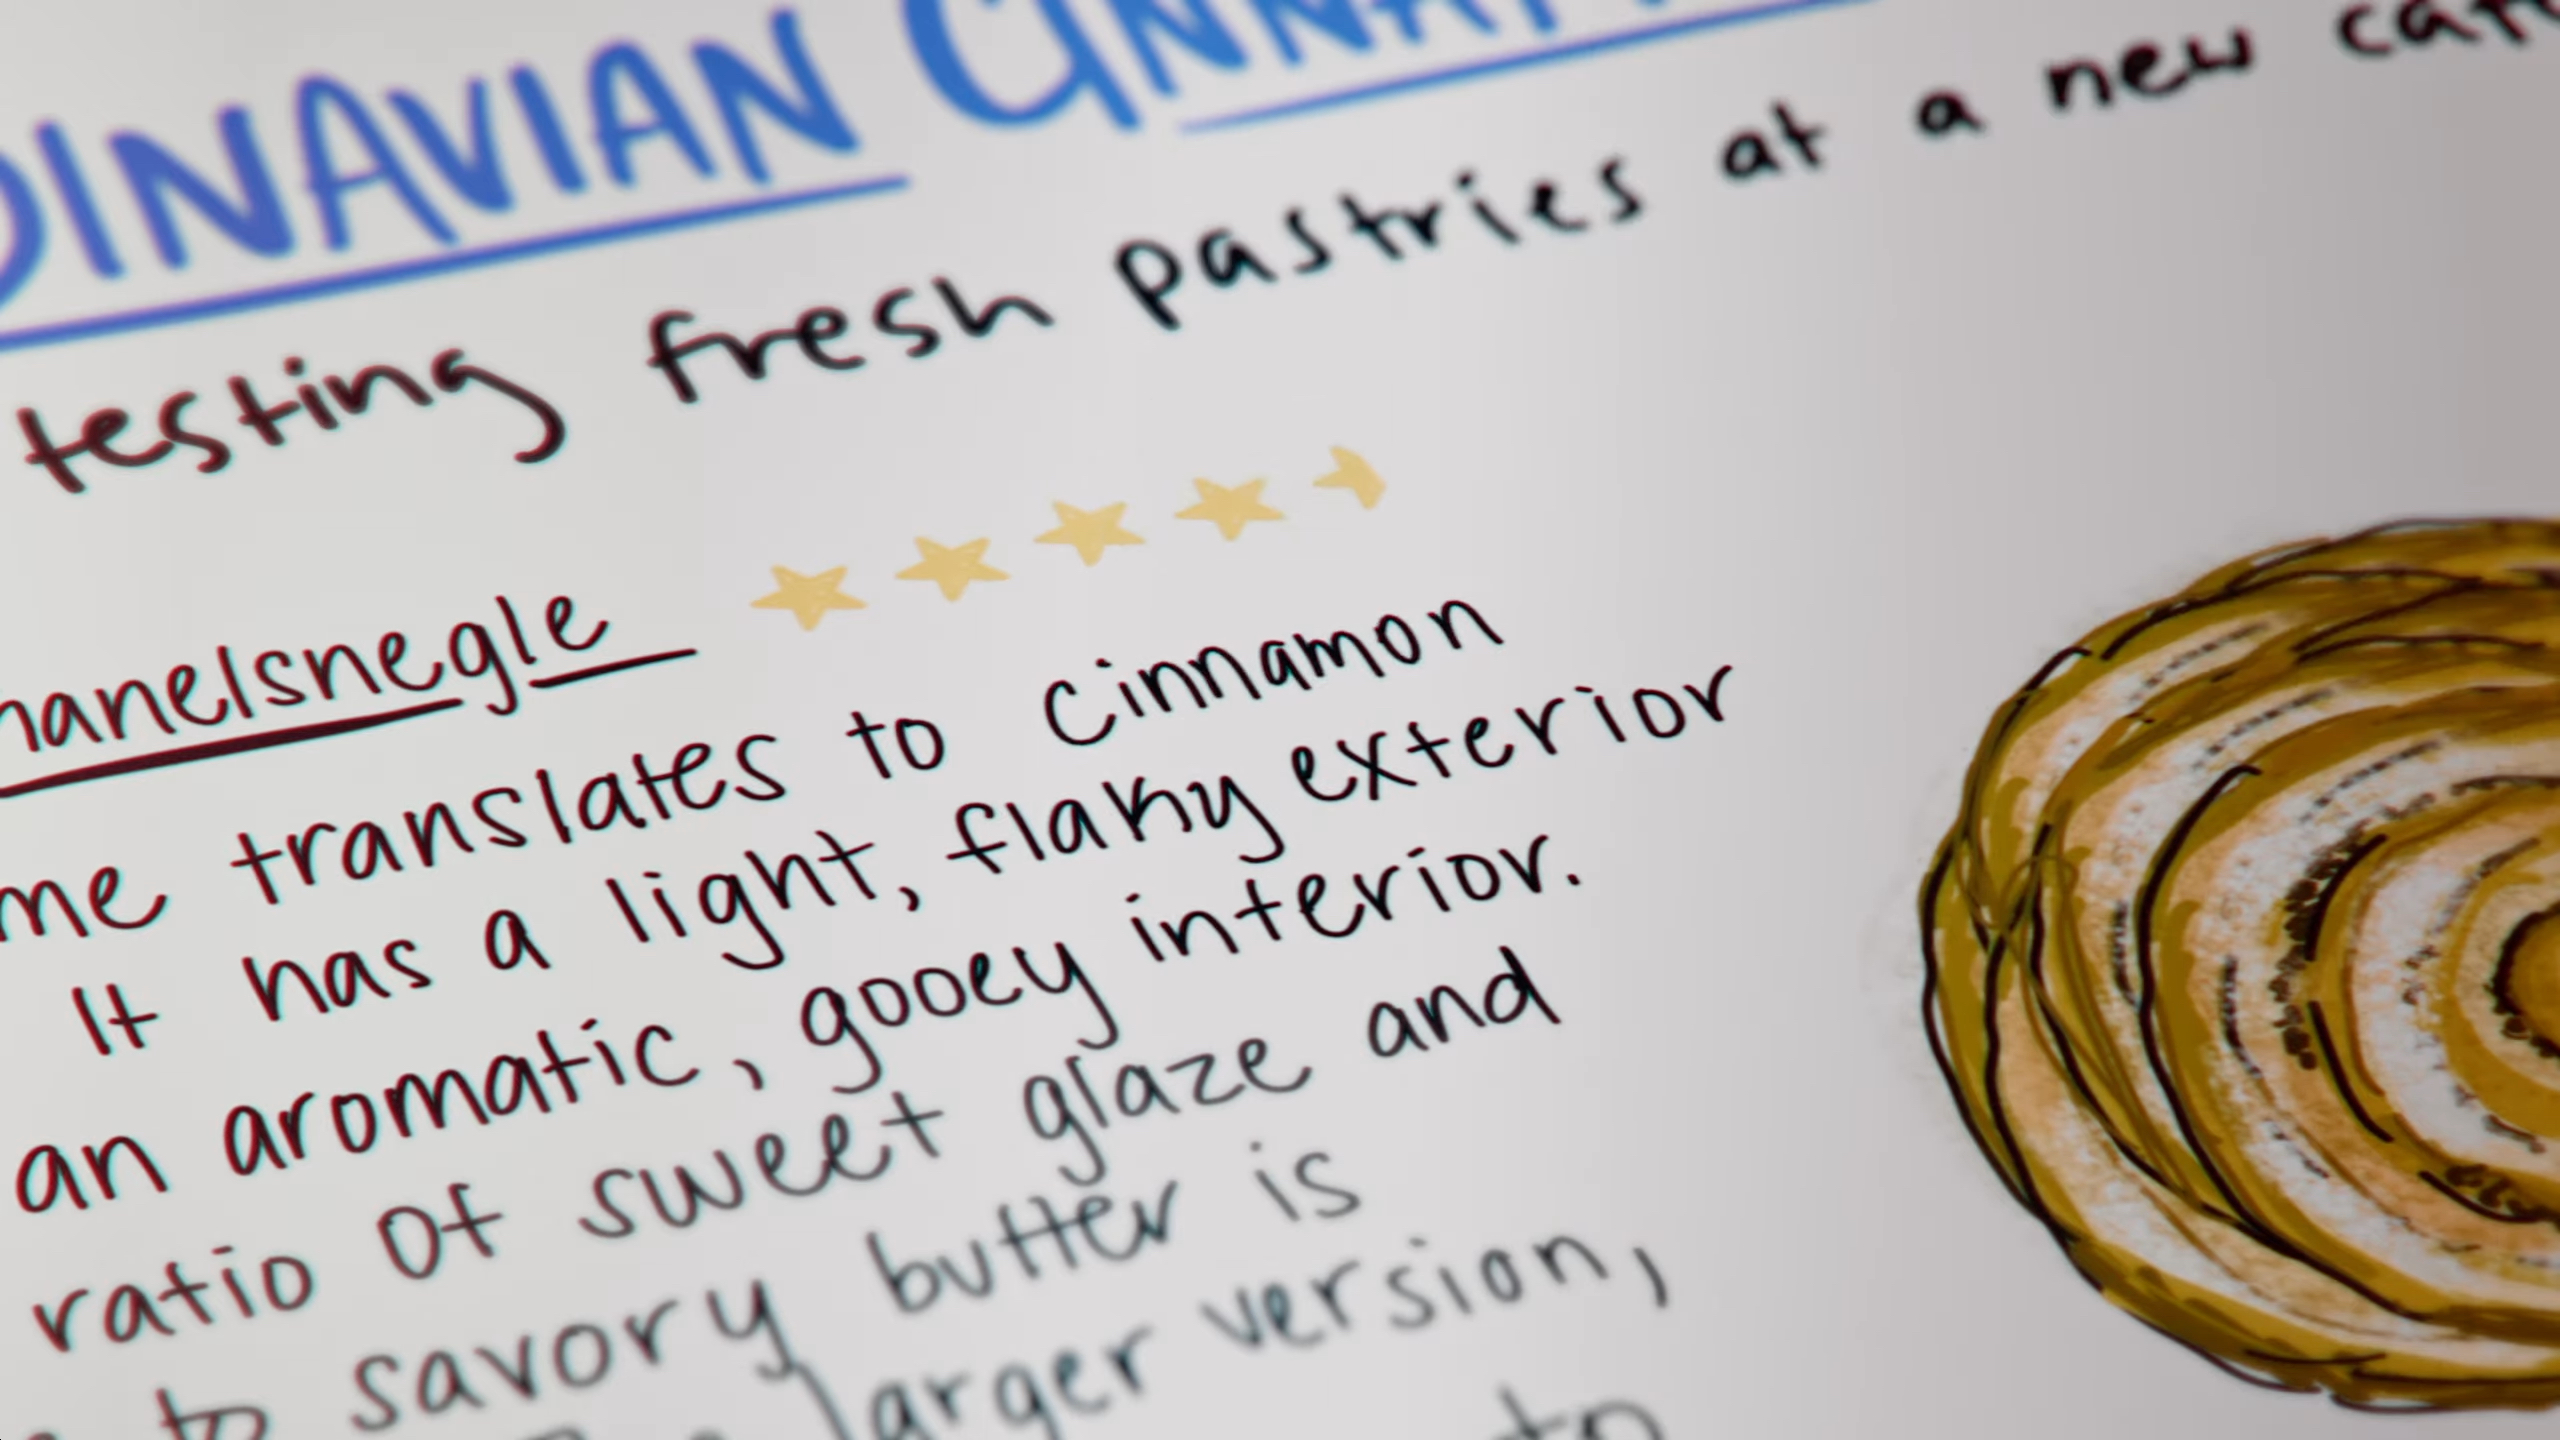 DINAVIAN CINNAM
testing fresh pastries at a new caf
hanelsnegle
me translates to cinnamon
It has a light, flaky exterior
an aromatic, gooey interior.
ratio of sweet glaze and
to savory butter is
larger version,
to